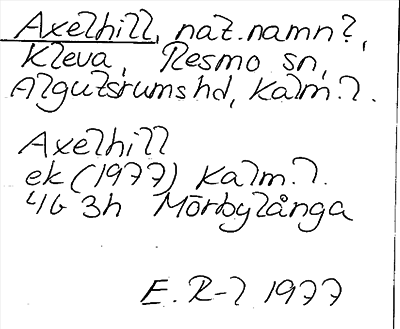 Axelhill, nat.namn?,
Kleva, Resmo sn,
Algutsrums hd, Kalm.l.
Axelhill
ek (1977) Kalm.l.
4G 3h Mörbylånga
E. R-l 1977